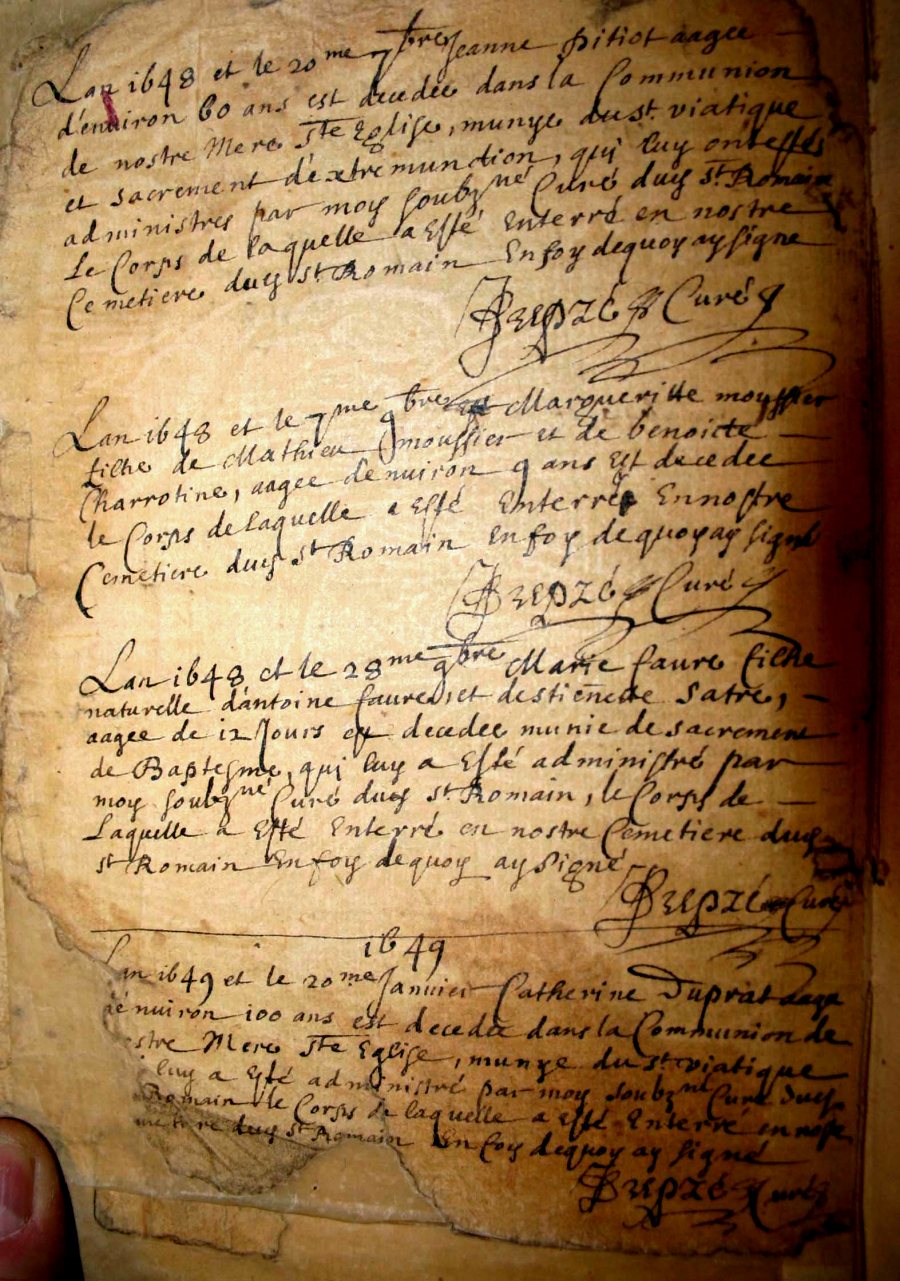 Lan 1648 et le 20me 7bre Jeanne pitiot aagee
d'enuiron 60 ans est decedee dans la Communion
de nostre Mere Ste Eglise, munye du st. viatique
et sacrement d'extremunction, qui luy ont estés
administres par moy soubzné Curé duy St. Romain
Le Corps de laquelle a esté Enterré en nostre
Cemetiere duy St Romain En foy de quoy ay signe
Curé
Lan 1648 et le 7me 9bre Margueritte moussier
filhe de Mathieu moussier et de benoicte
Charrotine, aagee denuiron 9 ans est decedee
le Corps de laquelle a esté Enterré En nostre
Cemetiere duy St Romain En foy de quoy ay signé
Curé
Lan 1648 et le 28me 9bre Marie faure filhe
naturelle d'antoine faure et destiennette Satre,
aagee de 12 Jours decedee munie de sacrement
de Baptesme, qui luy a Esté administré par
moy soubzné Curé duy st. Romain, le Corps de
Laquelle a Esté Enterré en nostre Cemetiere duy
st Romain En foy de quoy ay signé
Curé
1649
Lan 1649 et le 20me Janvier Catherine Duprat aage
denuiron 100 ans est decedee dans la Communion de
stre Mere Ste Eglise, munye du st. viatique
luy a Esté administré par moy soubzné Curé duy
Romain le Corps de laquelle a Esté Enterré en nostre
metiere duy St Romain En foy de quoy ay signé
Curé